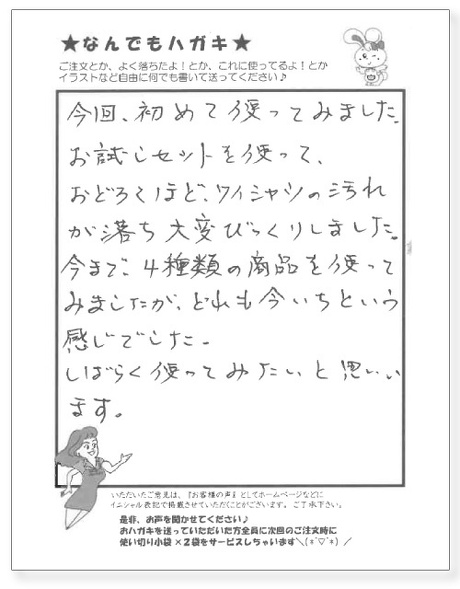 ★なんでもハガキ★
ご注文とか、よく落ちたよ！とか、これに使ってるよ！とか
イラストなど自由に何でも書いて送ってください♪
今回、初めて使ってみました。
お試しセットを使って、
おどろくほど、ワイシャツの汚れ
が落ち大変びっくりしました。
今まで、4種類の商品を使って
みましたが、どれも今いちという
感じでした。
しばらく使ってみたいと思い
ます。
いただいたご意見は、『お客様の声』としてホームページなどに
イニシャル表記で掲載させていただく場合がございます。ご了承下さい。
是非、お声を聞かせてください♪
おハガキを送っていただいた方全員に次回のご注文時に
使い切り小袋×2袋をサービスしちゃいます＼(*ﾟ▽ﾟ*)／